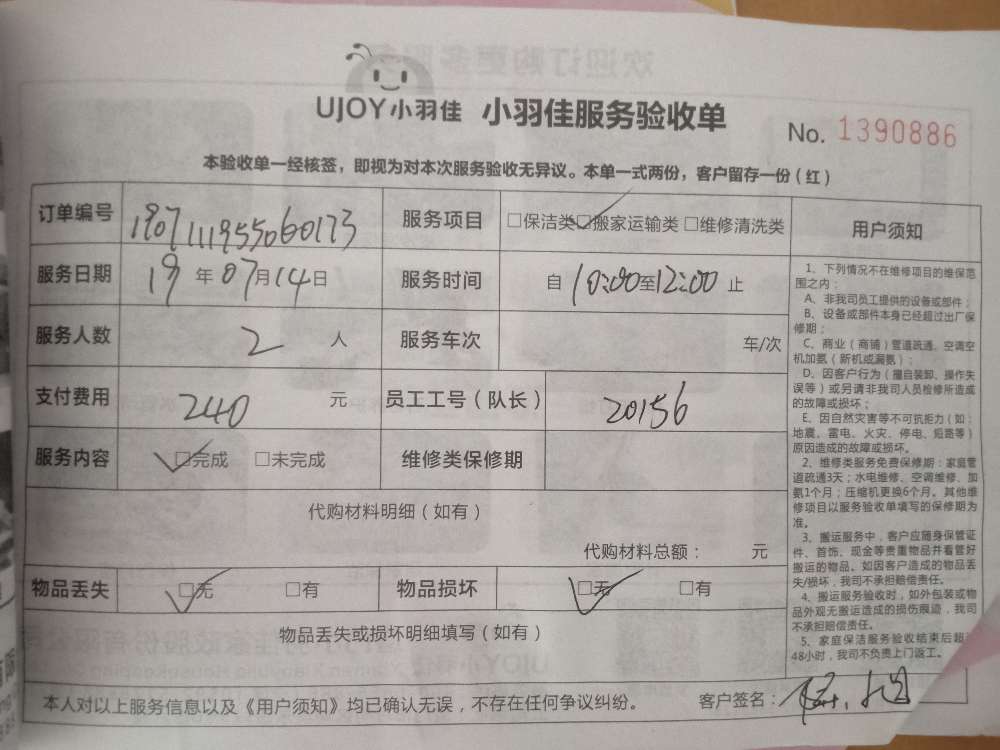 UJOY小羽佳 小羽佳服务验收单
No. 1390886
本验收单一经核签，即视为对本次服务验收无异议。本单一式两份，客户留存一份（红）
订单编号 1907111955060173 服务项目 □保洁类 □搬家运输类 □维修清洗类
服务日期 19 年 07 月 14 日 服务时间 自 10:00 至 12:00 止
服务人数 2 人 服务车次 车/次
支付费用 240 元 员工工号（队长） 20156
服务内容 □完成 □未完成 维修类保修期
代购材料明细（如有）
代购材料总额： 元
物品丢失 □无 □有 物品损坏 □无 □有
物品丢失或损坏明细填写（如有）
本人对以上服务信息以及《用户须知》均已确认无误，不存在任何争议纠纷。 客户签名：
用户须知
1、下列情况不在维修项目的维保范
围之内：
A、非我司员工提供的设备或部件；
B、设备或部件本身已经超过出厂保
修期；
C、商业（商铺）管道疏通、空调空
机加氨（新机或漏氨）；
D、因客户行为（擅自装卸、操作失
误等）或另请非我司人员检修所造成
的故障或损坏；
E、因自然灾害等不可抗拒力（如：
地震、雷电、火灾、停电、短路等）
原因造成的故障或损坏。
2、维修类服务免费保修期：家庭管
道疏通3天；水电维修、空调维修、加
氨1个月；压缩机更换6个月。其他维
修项目以服务验收单填写的保修期为
准。
3、搬运服务中，客户应随身保管证
件、首饰、现金等贵重物品并看管好
搬运的物品。如因客户造成的物品丢
失/损坏，我司不承担赔偿责任。
4、搬运服务验收时，如外包装或物
品外观无搬运造成的损伤痕迹，我司
不承担赔偿责任。
5、家庭保洁服务验收结束后超
48小时，我司不负责上门返工。